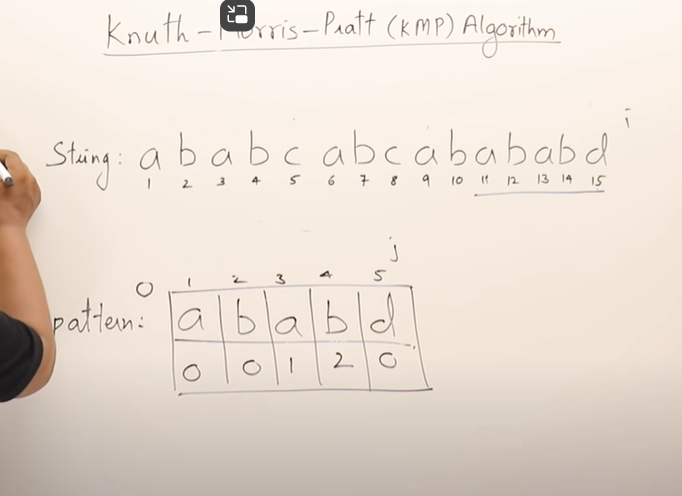 Knuth-Morris-Pratt (KMP) Algorithm
i
String: a b a b c a b c a b a b a b d
1 2 3 4 5 6 7 8 9 10 11 12 13 14 15
j
0 1 2 3 4 5
pattern: a b a b d
0 0 1 2 0